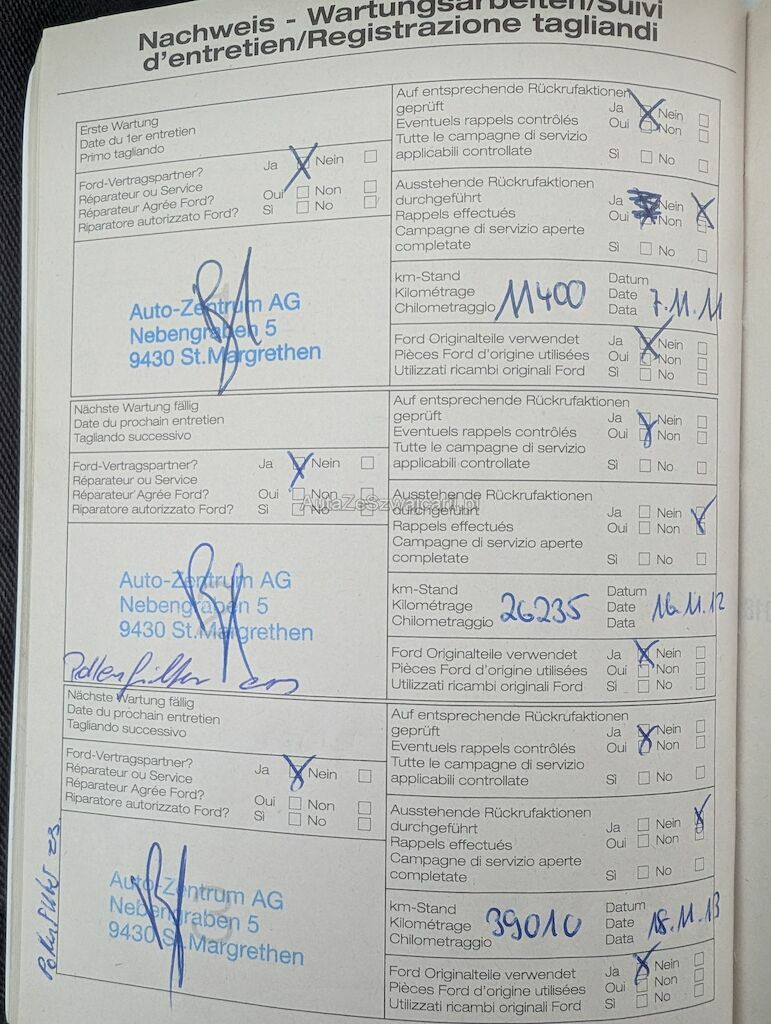 Nachweis - Wartungsarbeiten/Suivi
d'entretien/Registrazione tagliandi
Erste Wartung
Date du 1er entretien
Primo tagliando
Ford-Vertragspartner?
Réparateur ou Service
Réparateur Agrée Ford?
Riparatore autorizzato Ford?
Ja Nein
Oui Non
Sì No
Auto-Zentrum AG
Nebengraben 5
9430 St.Margrethen
Auf entsprechende Rückrufaktionen
geprüft
Eventuels rappels contrôlés
Tutte le campagne di servizio
applicabili controllate
Ja Nein
Oui Non
Sì No
Ausstehende Rückrufaktionen
durchgeführt
Rappels effectués
Campagne di servizio aperte
completate
Ja Nein
Oui Non
Sì No
km-Stand
Kilométrage
Chilometraggio
11400
Datum
Date
Data
7.11.11
Ford Originalteile verwendet
Pièces Ford d'origine utilisées
Utilizzati ricambi originali Ford
Ja Nein
Oui Non
Sì No
Nächste Wartung fällig
Date du prochain entretien
Tagliando successivo
Ford-Vertragspartner?
Réparateur ou Service
Réparateur Agrée Ford?
Riparatore autorizzato Ford?
Ja Nein
Oui Non
Sì No
Auto-Zentrum AG
Nebengraben 5
9430 St.Margrethen
Pollenfilter
Auf entsprechende Rückrufaktionen
geprüft
Eventuels rappels contrôlés
Tutte le campagne di servizio
applicabili controllate
Ja Nein
Oui Non
Sì No
AutaZeSzwajcarii.pl
Ausstehende Rückrufaktionen
durchgeführt
Rappels effectués
Campagne di servizio aperte
completate
Ja Nein
Oui Non
Sì No
km-Stand
Kilométrage
Chilometraggio
26235
Datum
Date
Data
16.11.12
Ford Originalteile verwendet
Pièces Ford d'origine utilisées
Utilizzati ricambi originali Ford
Ja Nein
Oui Non
Sì No
Nächste Wartung fällig
Date du prochain entretien
Tagliando successivo
Ford-Vertragspartner?
Réparateur ou Service
Réparateur Agrée Ford?
Riparatore autorizzato Ford?
Ja Nein
Oui Non
Sì No
Auto-Zentrum AG
Nebengraben 5
9430 St.Margrethen
Pollenfilter
Auf entsprechende Rückrufaktionen
geprüft
Eventuels rappels contrôlés
Tutte le campagne di servizio
applicabili controllate
Ja Nein
Oui Non
Sì No
Ausstehende Rückrufaktionen
durchgeführt
Rappels effectués
Campagne di servizio aperte
completate
Ja Nein
Oui Non
Sì No
km-Stand
Kilométrage
Chilometraggio
39010
Datum
Date
Data
18.11.13
Ford Originalteile verwendet
Pièces Ford d'origine utilisées
Utilizzati ricambi originali Ford
Ja Nein
Oui Non
Sì No